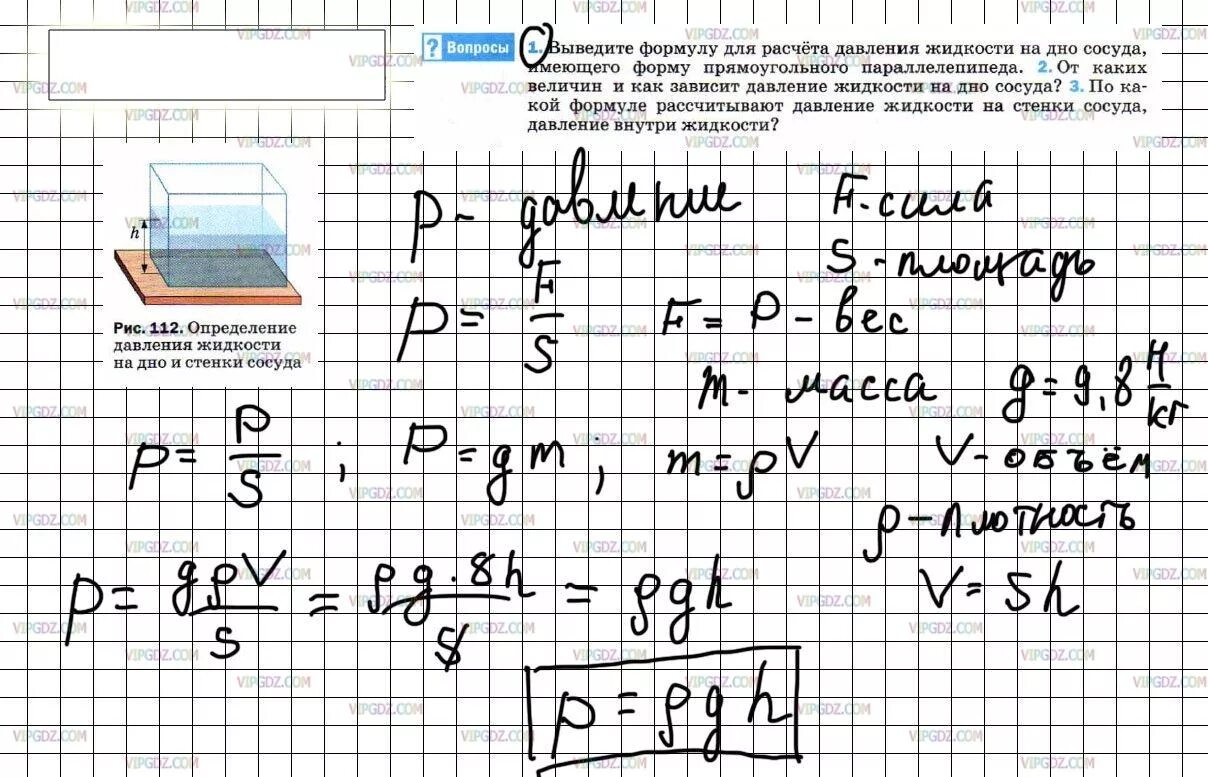 ? Вопросы 1. Выведите формулу для расчёта давления жидкости на дно сосуда,
имеющего форму прямоугольного параллелепипеда. 2. От каких
величин и как зависит давление жидкости на дно сосуда? 3. По ка-
кой формуле рассчитывают давление жидкости на стенки сосуда,
давление внутри жидкости?
h
Рис. 112. Определение
давления жидкости
на дно и стенки сосуда
p - давление F - сила
S - площадь
p = F/S F = P - вес
m - масса g = 9,8 Н/кг
p = P/S ; P = gm ; m = ρV V - объём
ρ - плотность
p = gρV/S = ρg·Sh/S = ρgh V = Sh
p = ρgh
VIPGDZ.COM